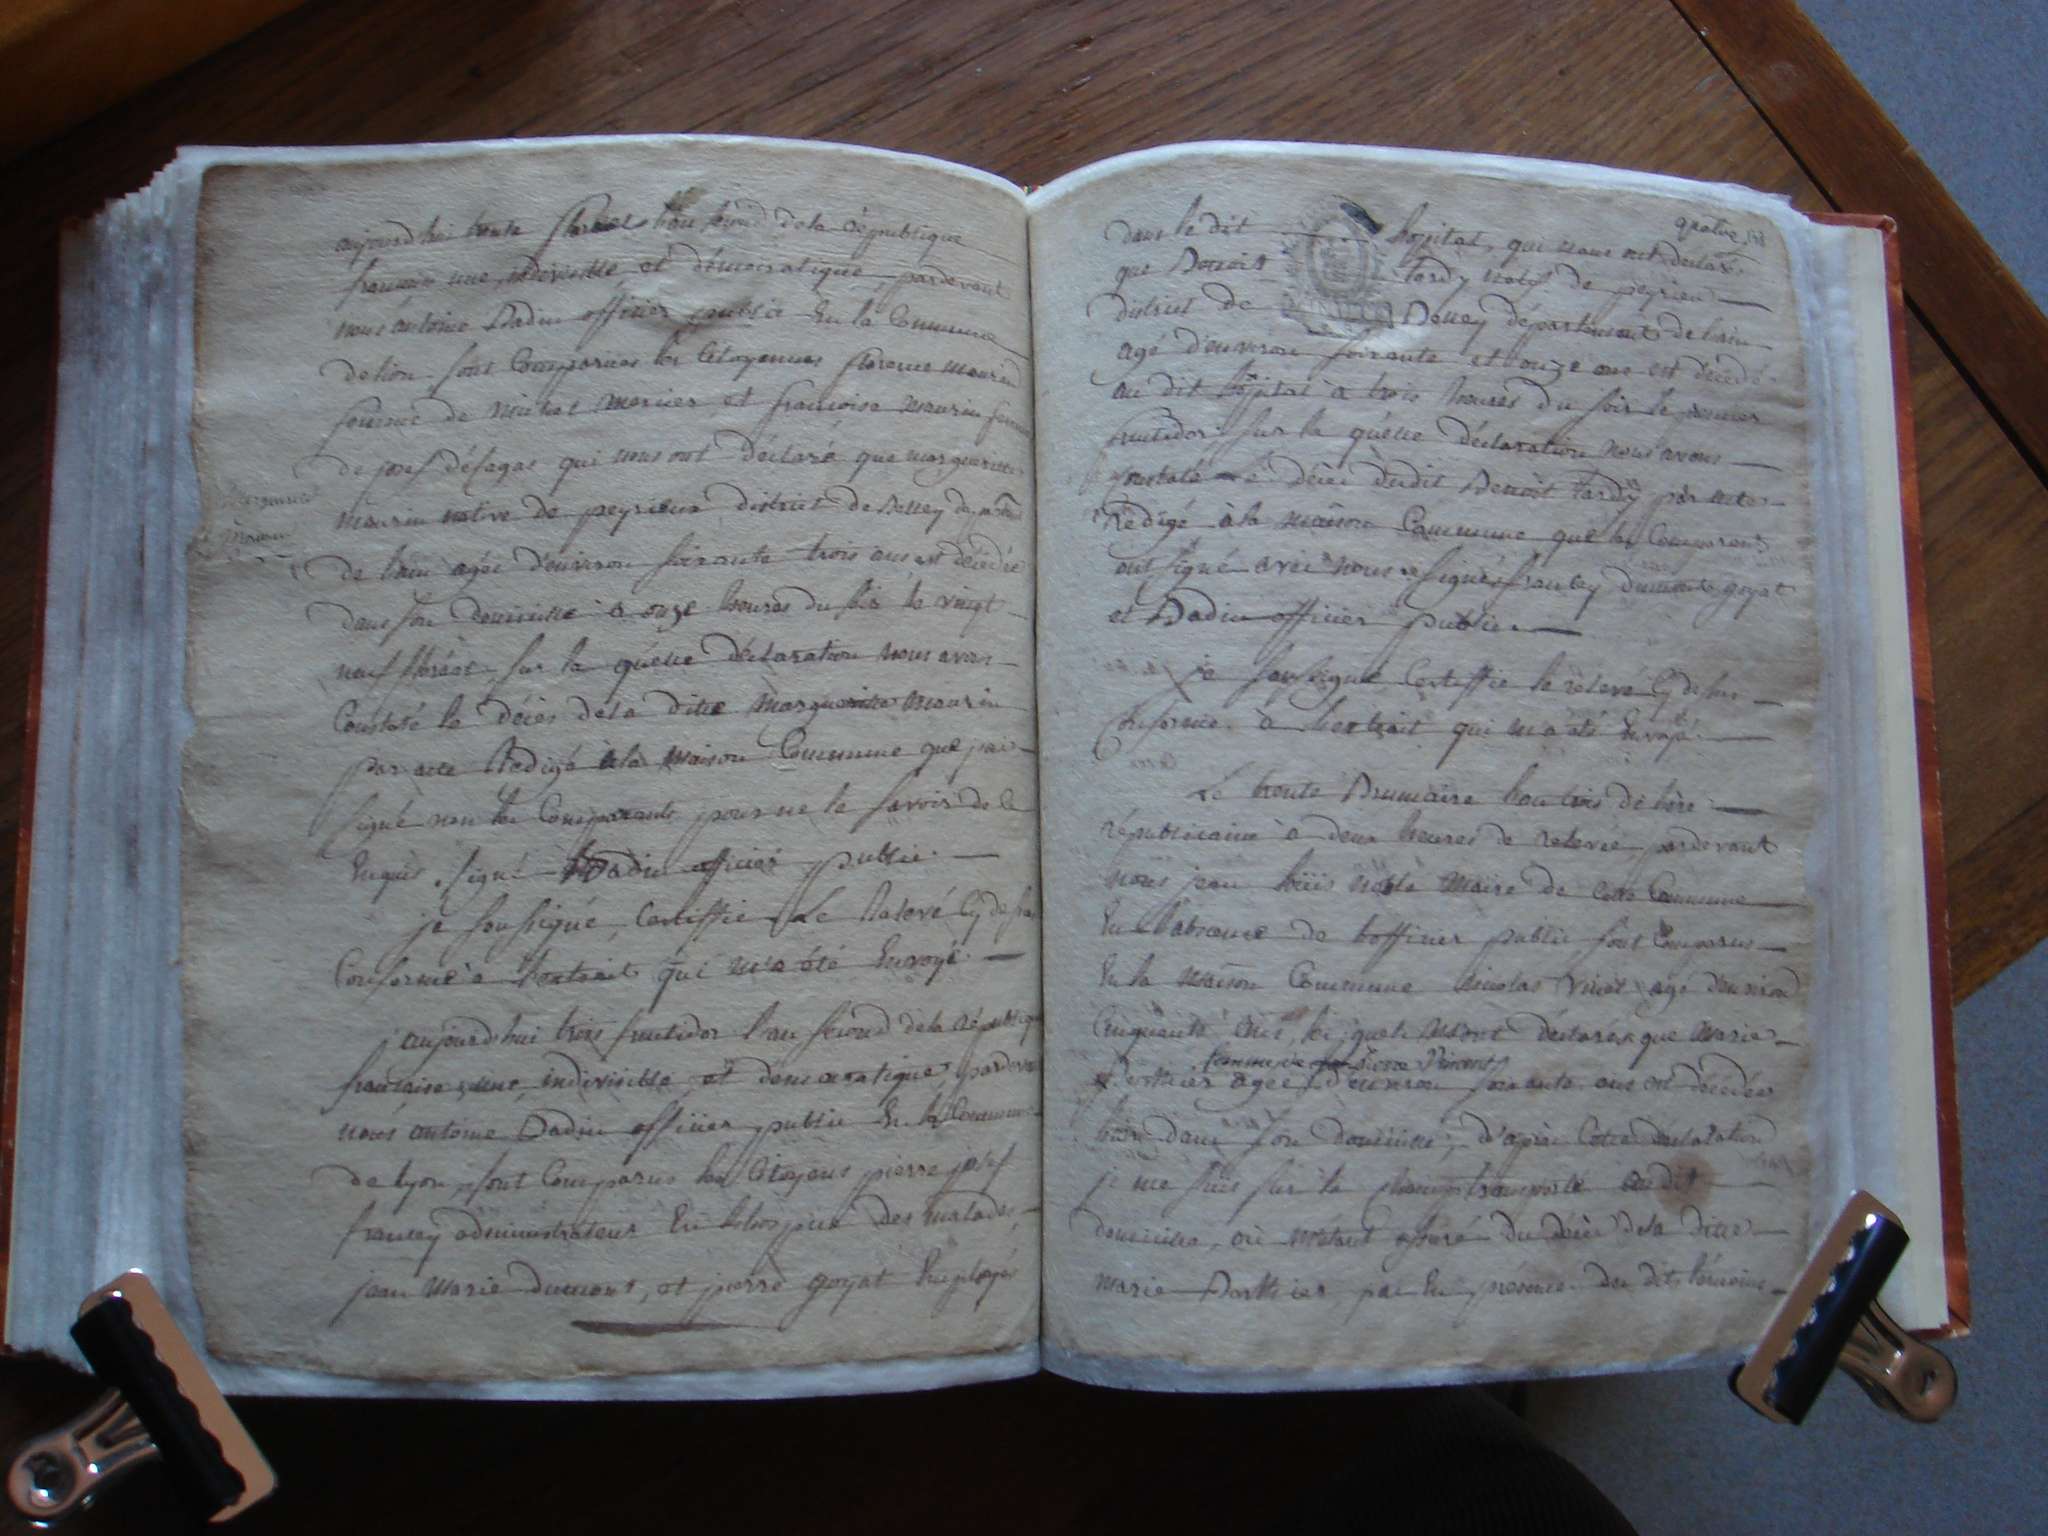 aujourd'hui trente floreal l'an second de la république
francaise une, indivisible, et démocratique, pardevant
nous antoine Badin officier public En la Commune
de lion sont Comparues les Citoyennes florence maurin
femme de michel mercier et francoise maurin femme
de josef désagas qui nous ont déclaré que marguerite
Marguerite
Maurin
maurin native de peyrieux district de Belley departement
de l'ain agée d'environ soixante trois ans est décédée
dans son domicille à onze heures du soir le vingt
neuf floréal, sur la quelle déclaration nous avons
Constaté le décès de la ditte Marguerite maurin
par acte Redigé à la maison Commune que jai
signé non les Comparants pour ne le savoir de ce
Enquis, signé Badin officier public.
je soussigné, Certiffie Le Relevé Cy dessus
Conforme à l'extrait qui m'a été Envoyé.
aujourd'hui trois fructidor l'an second de la république
francaise, une, indivisible, et democratique, pardevant
nous antoine Badin officier public En la Commune
de lyon, sont Comparus les Citoyens pierre josef
franley administrateur En l'hospice des malades,
jean Marie dumont, et pierre goyat Employés
quatre
dans le dit hopital, qui nous ont declaré
que Benoit tardy natif de peyrieu
district de Belley département de l'ain
agé d'environ soixante et onze ans est décédé
au dit hôpital à trois heures du soir le premier
fructidor sur la quelle déclaration nous avons
Constaté le décès dudit Benoit tardy par acte
Rédigé à la maison Commune que les Comparans
ont signé avec nous signés franley dumont goyat
et Badin officier public.
je soussigné Certiffie le relevé Cy dessus
Conforme à l'extrait qui m'a été Envoyé.
Le trente Brumaire l'an trois de l'ère
républicaine à deux heures de relevée, pardevant
nous jean loüis maire de cette Commune
En l'absence de l'officier public sont Comparus
En la maison Commune nicolas agé d'environ
Cinquante ans, les quels m'ont déclaré que Marie
femme de Pierre Vincent
Berthier agée d'environ soixante ans est décédée
hier dans son domicille, d'après Cette déclaration
je me suis sur le champ transporté audit
domicille, où m'étant assuré du décès de la ditte
marie Berthier, par En présence des dits témoins